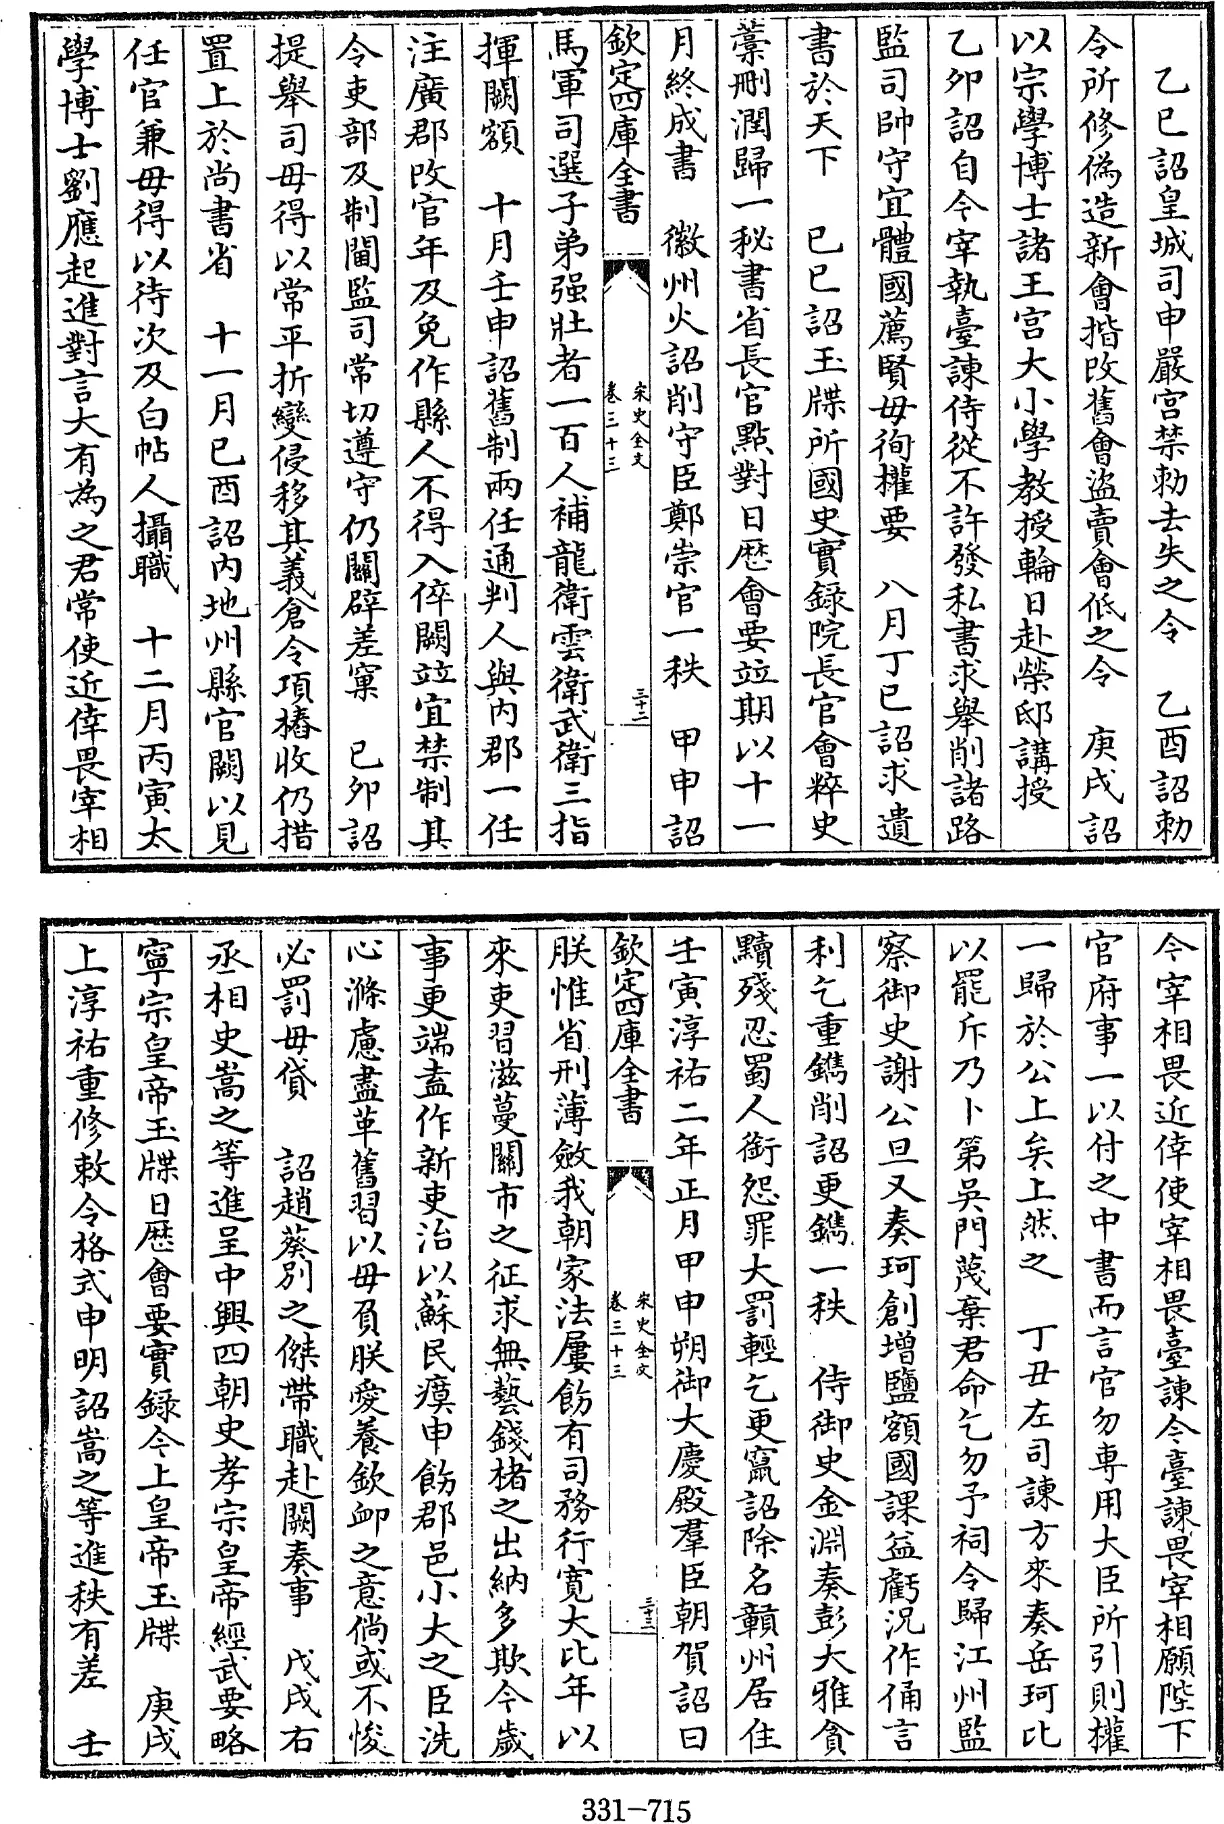 乙巳詔皇城司申嚴宫禁勅去失之令　乙酉詔勅
令所修偽造新會揩改舊會盜賣會低之令　庚戌詔
以宗學博士諸王宫大小學教授輪日赴榮邸講授
乙卯詔自今宰執臺諫侍從不許發私書求舉削諸路
監司帥守宜體國薦賢毋徇權要　八月丁巳詔求遺
書於天下　己巳詔玉牒所國史實録院長官會粹史
藁刪潤歸一秘書省長官點對日歷會要竝期以十一
月終成書　徽州火詔削守臣鄭崇官一秩　甲申詔
欽定四庫全書　宋史全文　卷三十三　三十二
馬軍司選子弟强壯者一百人補龍衛雲衛武衛三指
揮闕額　十月壬申詔舊制兩任通判人與内郡一任
注廣郡改官年及免作縣人不得入倅闕竝宜禁制其
令吏部及制閫監司常切遵守仍關辟差窠　己卯詔
提舉司毋得以常平折變侵移其義倉令項樁收仍措
置上於尚書省　十一月己酉詔内地州縣官闕以見
任官兼毋得以待次及白帖人攝職　十二月丙寅太
學博士劉應起進對言大有為之君常使近倖畏宰相
今宰相畏近倖使宰相畏臺諫今臺諫畏宰相願陛下
官府事一以付之中書而言官勿専用大臣所引則權
一歸於公上矣上然之　丁丑左司諫方來奏岳珂比
以罷斥乃卜第吳門蔑棄君命乞勿予祠令歸江州監
察御史謝公旦又奏珂創增鹽額國課益虧況作俑言
利乞重鐫削詔更鐫一秩　侍御史金淵奏彭大雅貪
黷殘忍蜀人銜怨罪大罰輕乞更竄詔除名贛州居住
壬寅淳祐二年正月甲申朔御大慶殿羣臣朝賀詔曰
欽定四庫全書　宋史全文　卷三十三　三十三
朕惟省刑薄斂我朝家法屢飭有司務行寛大比年以
來吏習滋蔓關市之征求無藝錢楮之出納多欺今歲
事更端盍作新吏治以蘇民瘼申飭郡邑小大之臣洗
心滌慮盡革舊習以毋負朕愛養欽卹之意倘或不悛
必罰毋貸　詔趙葵别之傑帶職赴闕奏事　戊戌右
丞相史嵩之等進呈中興四朝史孝宗皇帝經武要略
寧宗皇帝玉牒日歷會要實録今上皇帝玉牒　庚戌
上淳祐重修敕令格式申明詔嵩之等進秩有差　壬
331-715